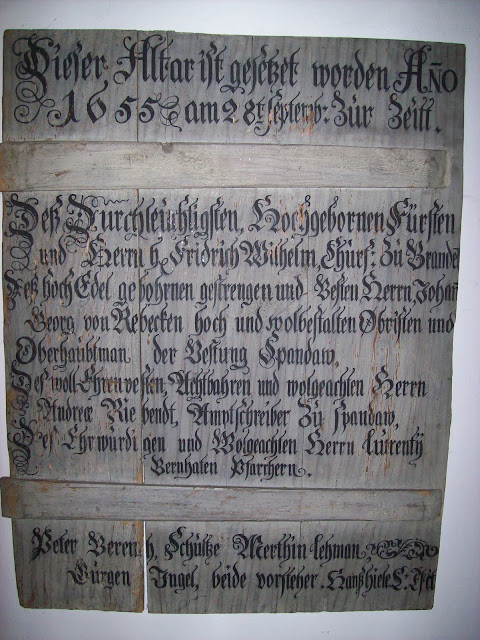 Dieser Altar ist gesetzet worden Año
1655 am 28t septemb: Zur Zeitt.
Deß Durchleuchtigsten, Hochgebornen Fürsten
und Herrn h. Fridrich Wilhelm Churf: Zu Brande
Deß hoch Edel gebohrnen gestrengen und Vesten Herrn Johañ
Georg von Rebecken hoch und wolbestalten Obristen und
Oberhaubtman der Vestung Spandaw,
Des woll Ehrenvesten, Achtbahren und wolgeachten Herrn
Andreæ Rie bendt, Amptschreiber Zu Spandaw,
Des Ehrwurdigen und Wolgeachten Herrn
Pfarhern.
Peter h, Schultze Merthin lehman
Jürgen beide vorsteher.